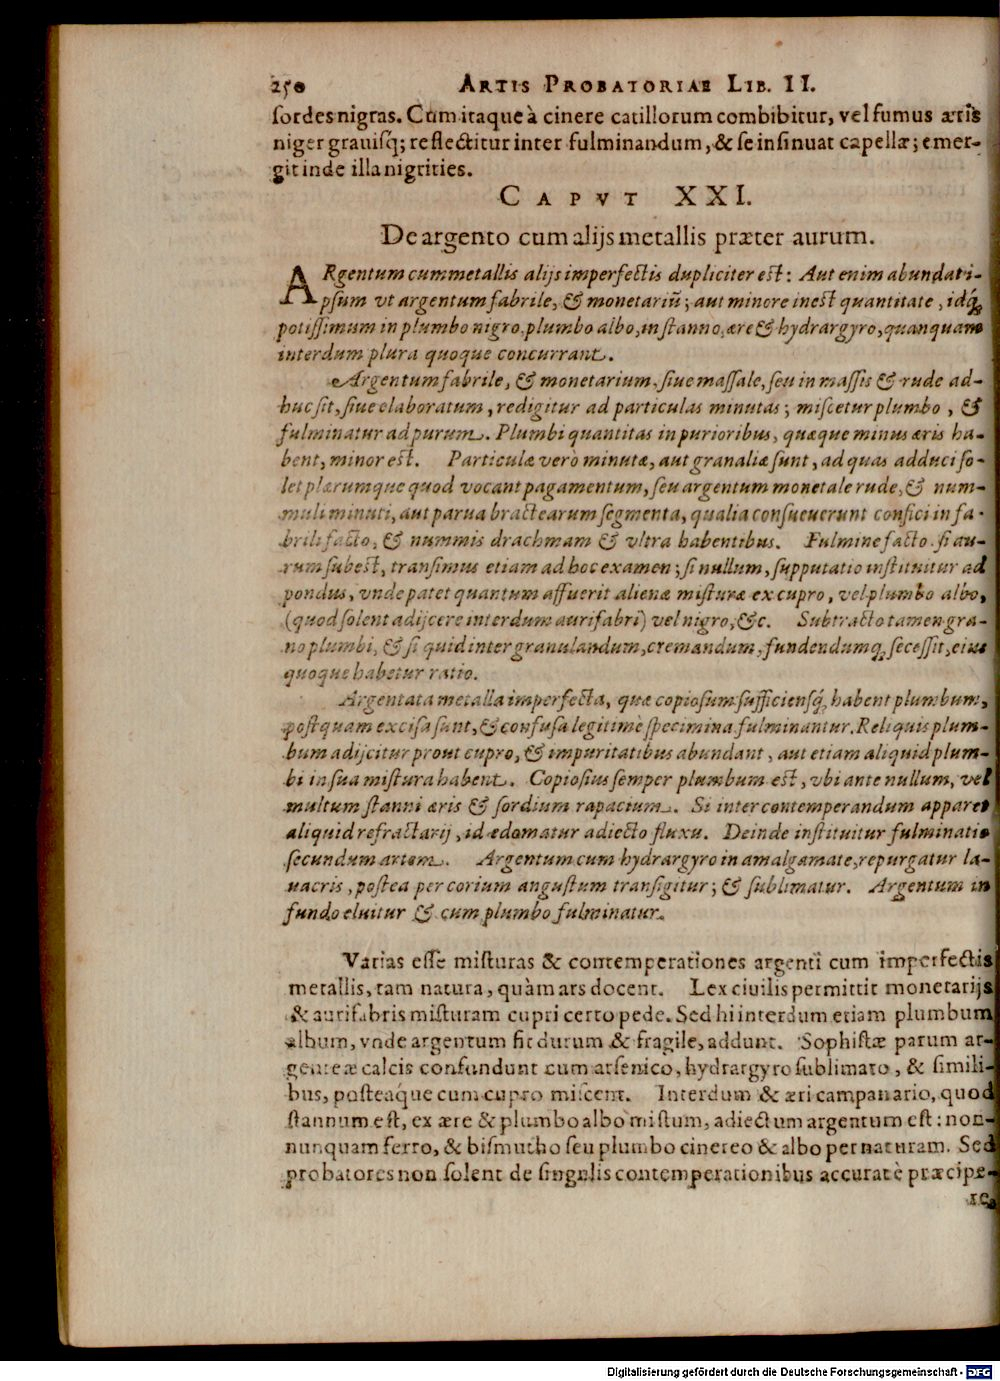 250 ARTIS PROBATORIAE LIB. II.
ſordes nigras. Cum itaque à cinere catillorum combibitur, vel fumus æris
niger grauiſq́; reflectitur inter fulminandum, & ſe inſinuat capellæ; emer-
git inde illa nigrities.
CAPVT XXI.
De argento cum alijs metallis præter aurum.
ARgentum cum metallis alijs imperfectis dupliciter est: Aut enim abundat i-
pſum vt argentum fabrile, & monetariũ; aut minore inest quantitate, idq́;
potiſſimum in plumbo nigro, plumbo albo, in ſtanno, ære & hydrargyro, quanquam
interdum plura quoque concurrant.
Argentum fabrile, & monetarium, ſiue maſſale, ſeu in maſſis & rude ad-
huc ſit, ſiue elaboratum, redigitur ad particulas minutas; miſcetur plumbo, &
fulminatur ad purum. Plumbi quantitas in purioribus, quæque minus æris ha-
bent, minor est. Particulæ verò minutæ, aut granaliæ ſunt, ad quas adduci ſo-
let plærumque quod vocant pagamentum, ſeu argentum monetale rude, & num-
muli minuti, aut parua bractearum ſegmenta, qualia conſueuerunt confici in fa-
brili facto, & nummis drachmam & vltra habentibus. Fulmine facto. ſi au-
rum ſubest, tranſimus etiam ad hoc examen; ſi nullum, ſupputatio inſtituitur ad
pondus, vnde patet quantum affuerit alienæ miſturæ ex cupro, vel plumbo albo,
(quod ſolent adijcere interdum aurifabri) vel nigro, &c. Subtracto tamen gra-
no plumbi, & ſi quid inter granulandum, cremandum, fundendumq́; ſeceſſit, eius
quoque habetur ratio.
Argentata metalla imperfecta, quæ copioſum ſufficienſq́; habent plumbum,
poſtquam exciſa ſunt, & confuſa legitimè ſpecimina fulminantur. Reliquis plum-
bum adijcitur prout cupro, & impuritatibus abundant, aut etiam aliquid plum-
bi in ſua miſtura habent. Copioſius ſemper plumbum est, vbi ante nullum, vel
multum ſtanni æris & ſordium rapacium. Si inter contemperandum apparet
aliquid refractarij, id edomatur adiecto fluxu. Deinde inſtituitur fulminatio
ſecundum artem. Argentum cum hydrargyro in amalgamate, repurgatur la-
uacris, poſtea per corium anguſtum tranſigitur; & ſublimatur. Argentum in
fundo eluitur & cum plumbo fulminatur.
Varias eſſe miſturas & contemperationes argenti cum imperfectis
metallis, tam natura, quàm ars docent. Lex ciuilis permittit monetarijs
& aurifabris miſturam cupri certo pede. Sed hi interdum etiam plumbum
album, vnde argentum fit durum & fragile, addunt. Sophiſtæ parum ar-
genteæ calcis confundunt cum arſenico, hydrargyro ſublimato, & ſimili-
bus, poſteáque cum cupro miſcent. Interdum & æri campanario, quod
ſtannum eſt, ex ære & plumbo albo miſtum, adiectum argentum eſt: non-
nunquam ferro, & biſmutho ſeu plumbo cinereo & albo per naturam. Sed
probatores non ſolent de ſingulis contemperationibus accuratè præcipe-
re,
Digitalisierung gefördert durch die Deutsche Forschungsgemeinschaft - DFG